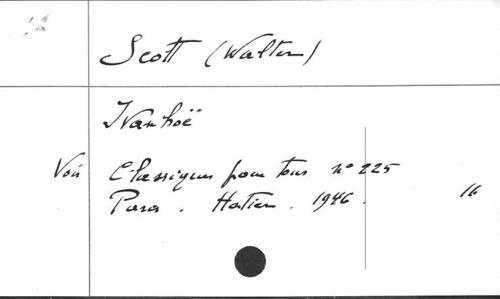 Scott (Walter)
Ivanhoë
Voir Classiques pour tous n° 225
Paris. Hatier. 1946. 16